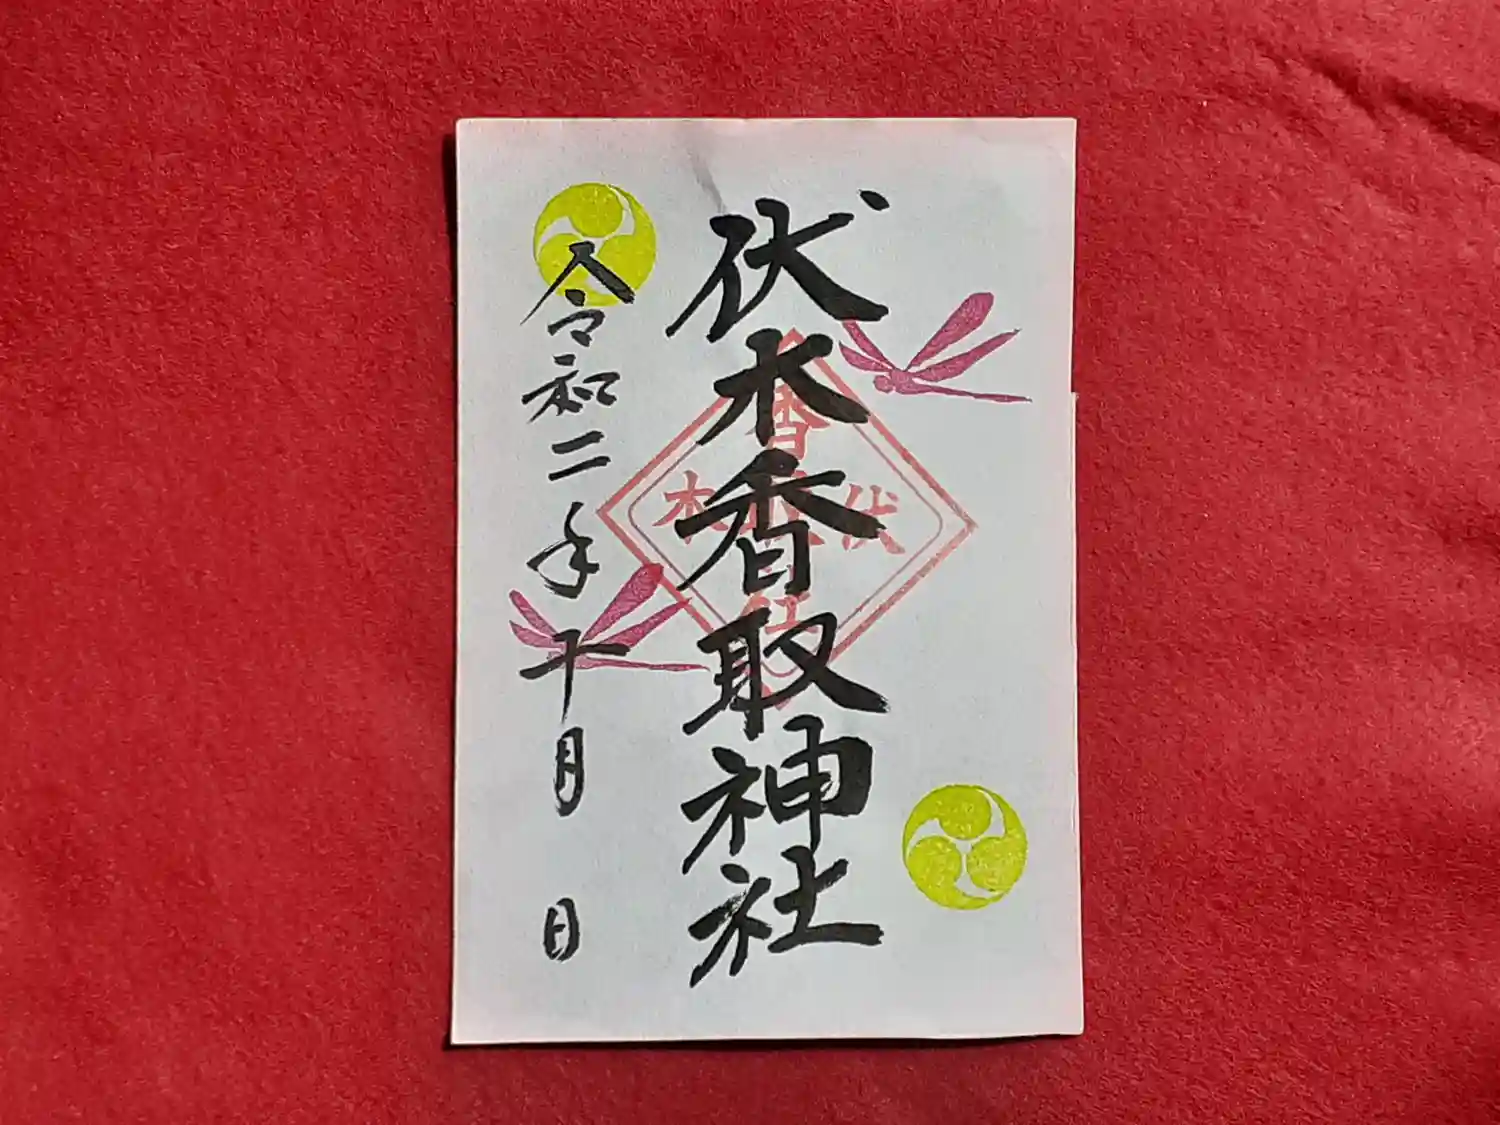 伏木香取神社
令和二年十月 日
香
伏 木